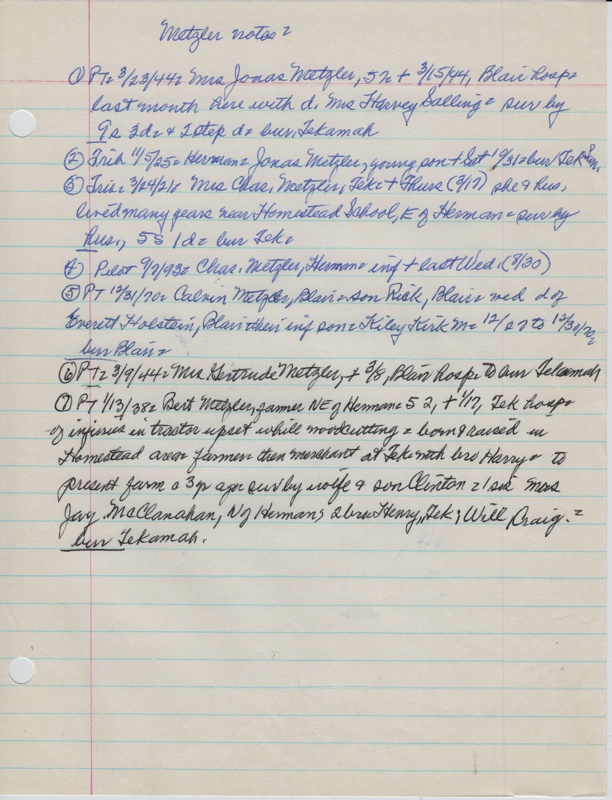 Metzler notes=
① PT= 3/23/44= Mrs Jonas Metzler, 52 + 3/15/44, Blair hosp=
last month here with d. Mrs Harvey Salling= sur by
9s 3d= & 2 step d= bur. Tekamah
② Trib 11/5/25= Herman= Jonas Metzler, young son + Sat 10/31= bur Tek
③ Trib= 3/24/21= Mrs Chas. Metzler, Tek= + Thurs (3/17) she & hus.
lived many years near Homestead School, E of Herman= sur by
hus., 5s 1d= bur Tek=
④ Pilot 9/7/93= Chas. Metzler, Herman= inf + last Wed. (8/30)
⑤ PT 12/31/70= Calvin Metzler, Blair= son Rick, Blair= wed d of
Everett Holstein, Blair= their inf son= Kiley Kirk M= 12/27 to 12/30/70=
bur Blair=
⑥ PT= 3/9/44= Mrs Gertrude Metzler, + 3/8, Blair hosp= to bur Tekamah
⑦ PT 1/13/38= Bert Metzler, farmer NE of Herman= 52, + 1/17, Tek hosp=
of injuries in tractor upset while woodcutting= born & raised in
Homestead area= farmer= then merchant at Tek with bro Harry= to
present farm a 3y ago= sur by wife & son Clinton= 1 sis Mrs
Jay McClanahan, N of Herman; 2 bro= Henry, Tek; Will Craig.=
bur Tekamah.